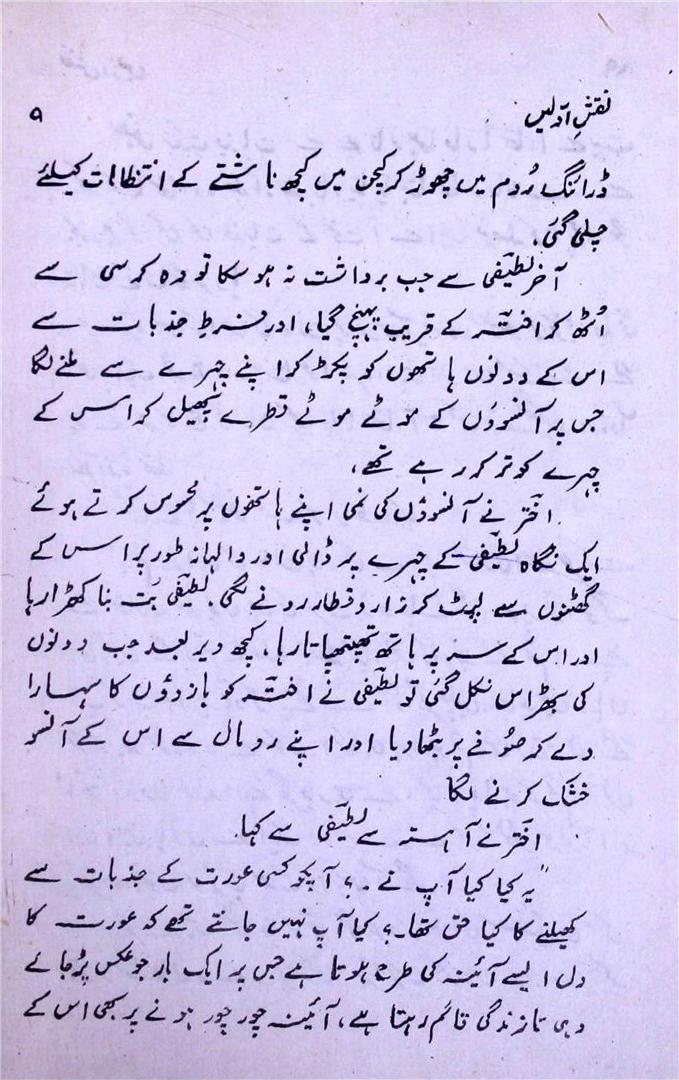 نقشِ اوّلیں
۹
ڈرائنگ رُوم میں چھوڑ کر کچن میں کچھ ناشتے کے انتظامات کیلئے
چلی گئی۔
آخر لطیفی سے جب برداشت نہ ہو سکا تو وہ کرسی سے
اُٹھ کر اختر کے قریب پہنچ گیا، اور فرطِ جذبات سے
اس کے دونوں ہاتھوں کو پکڑ کر اپنے چہرے سے ملنے لگا
جس پر آنسوؤں کے موٹے موٹے قطرے پھیل کر اس کے
چہرے کو تر کر رہے تھے،
اختر نے آنسوؤں کی نمی اپنے ہاتھوں پر محسوس کرتے ہوئے
ایک نگاہ لطیفی کے چہرے پر ڈالی اور والہانہ طور پر اس کے
گھٹنوں سے لپٹ کر زار و قطار رونے لگی۔ لطیفی بُت بنا کھڑا رہا
اور اس کے سر پر ہاتھ تھپتھپاتا رہا، کچھ دیر بعد جب دونوں
کی بھڑاس نکل گئی تو لطیفی نے اختر کو بازوؤں کا سہارا
دے کر صوفے پر بٹھا دیا اور اپنے رومال سے اس کے آنسو
خشک کرنے لگا
اختر نے آہستہ سے لطیفی سے کہا۔
"یہ کیا کیا آپ نے ۔؟ آپکو کسی عورت کے جذبات سے
کھیلنے کا کیا حق تھا۔؟ کیا آپ نہیں جانتے تھے کہ عورت کا
دل ایسے آئینہ کی طرح ہوتا ہے جس پر ایک بار جو عکس پڑ جائے
وہی تا زندگی قائم رہتا ہے، آئینہ چور چور ہونے پر بھی اس کے